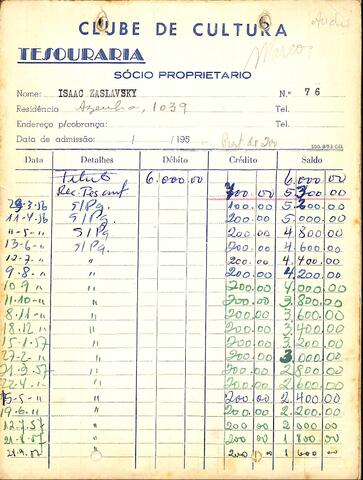 CLUBE DE CULTURA
TESOURARIA
Marcos
SÓCIO PROPRIETARIO
Nome: ISAAC ZASLAVSKY N.º 76
Residência Azenha, 1039 Tel.
Endereço p/cobrança: Tel.
Data de admissão: / /195
Data Detalhes Débito Crédito Saldo
Titulo 6.000.00 6.000.00
5.300.00
29-3-56 S/Pg. 100.00 5.200.00
11-4-56 S/Pg. 200.00 5.000.00
11-5-" S/Pg 200.00 4.800.00
13-6-" S/Pg. 200.00 4.600.00
12.7-" " 200.00 4.400.00
9.8-" " 200.00 4.200.00
10-9 " " 200.00 4.000.00
11-10-" " 200.00 3.800.00
8.11-" " 200.00 3.600.00
18.12 " " 200.00 3.400.00
15-1-57 " 200.00 3.200.00
27-2-" " 200.00 3.000.00
21-3-57 " 200.00 2.800.00
22-4-" " 200.00 2.600.00
15-5-" " 200.00 2.400.00
19.6.11 " 200.00 2.200.00
12.7.57 " 200.00 2.000.00
21-8-57 " 200.00 1.800.00
" 200.00 1.600.00